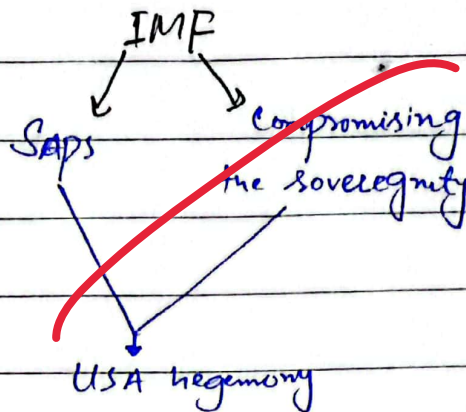 IMF
SAPs
compromising
the soveregnity
USA hegemony